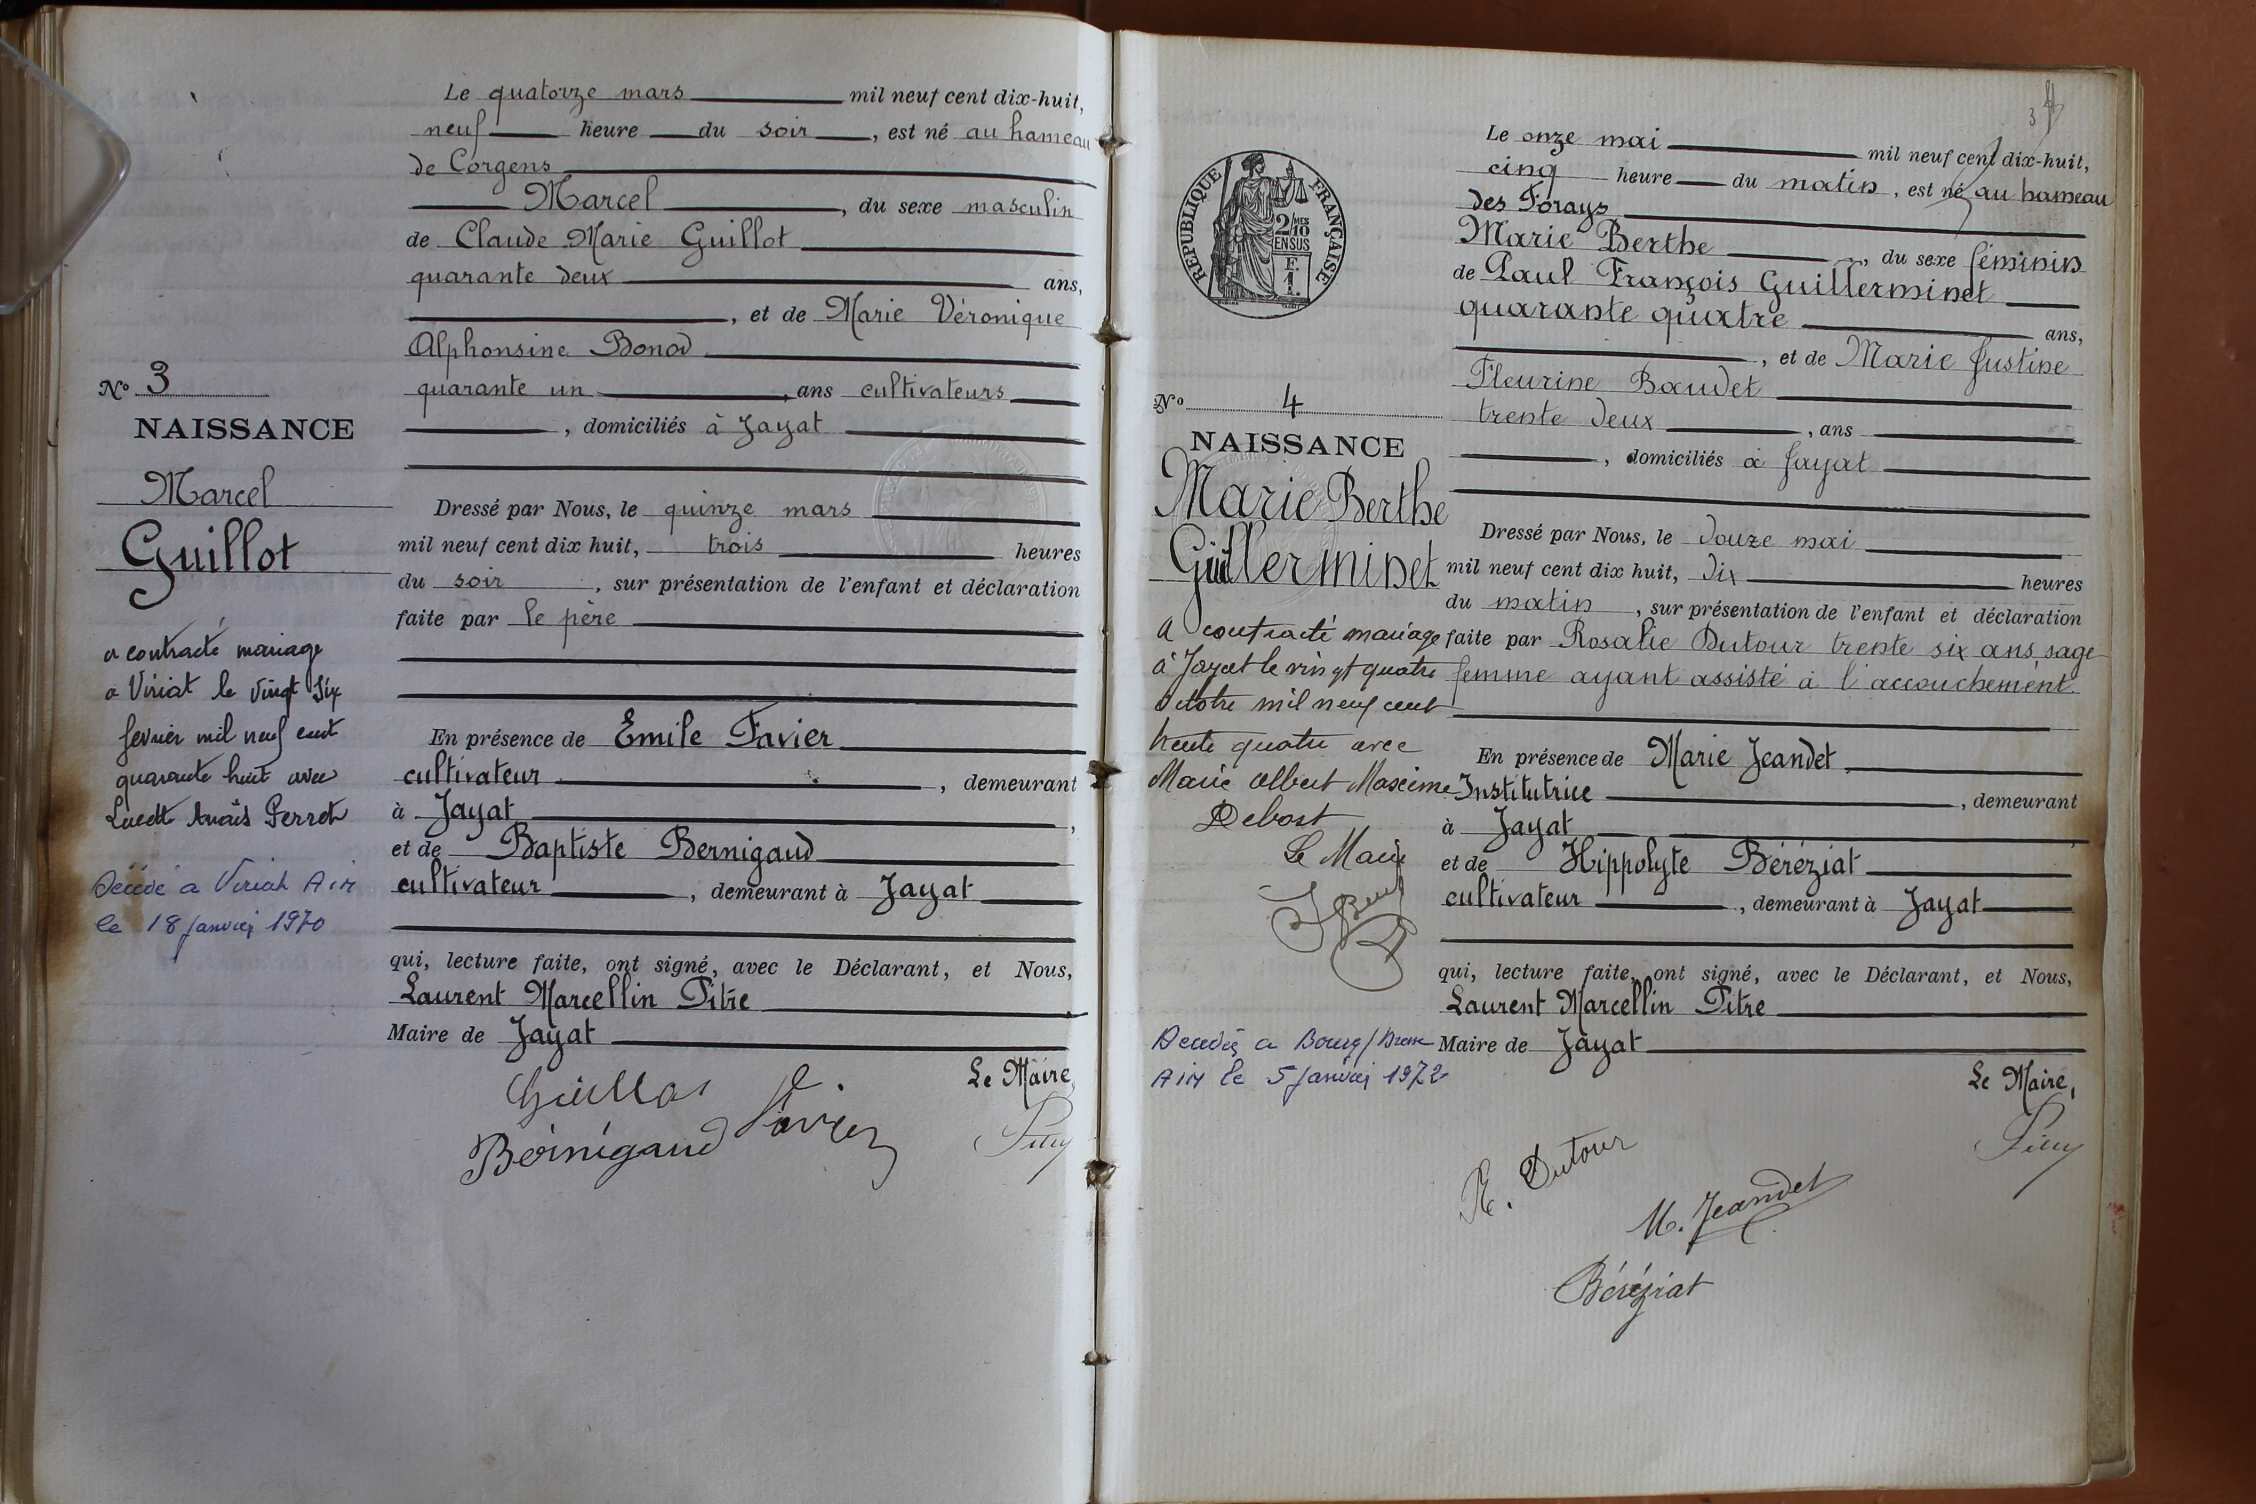 Le quatorze mars mil neuf cent dix-huit,
neuf heure du soir, est né au hameau
de Corgens
Marcel, du sexe masculin
de Claude Marie Guillot
quarante deux ans,
, et de Marie Véronique
Alphonsine Bonod
quarante un, ans cultivateurs
, domiciliés à Jayat
Nº 3
NAISSANCE
Marcel
Guillot
a contracté mariage
à Viriat le vingt six
février mil neuf cent
quarante huit avec
Lucette Anaïs Perret
Décédé a Viriat Ain
le 18 Janvier 1970
Dressé par Nous, le quinze mars
mil neuf cent dix huit, trois heures
du soir, sur présentation de l'enfant et déclaration
faite par le père
En présence de Emile Favier
cultivateur, demeurant
à Jayat,
et de Baptiste Bernigaud
cultivateur, demeurant à Jayat
qui, lecture faite, ont signé, avec le Déclarant, et Nous,
Laurent Marcellin Pitre
Maire de Jayat
Le Maire,
Guillot
Favier
Bernigaud
3
RÉPUBLIQUE FRANÇAISE
2/10 MES
EN SUS
F.
1.
Le onze mai mil neuf cent dix-huit,
cinq heure du matin, est né au hameau
des Forays
Marie Berthe, du sexe féminin
de Paul François Guillerminet
quarante quatre ans,
, et de Marie Justine
Fleurine Baudet
trente deux, ans
, domiciliés à Jayat
Nº 4
NAISSANCE
Marie Berthe
Guillerminet
A contracté mariage
à Jayat le vingt quatre
octobre mil neuf cent
trente quatre avec
Marie Albert Maxime
Debost
Le Maire
Décédée a Bourg/Bresse
Ain le 5 Janvier 1972
Dressé par Nous, le douze mai
mil neuf cent dix huit, dix heures
du matin, sur présentation de l'enfant et déclaration
faite par Rosalie Dutour trente six ans, sage
femme ayant assisté à l'accouchement
En présence de Marie Jeandet
Institutrice, demeurant
à Jayat
et de Hippolyte Béréziat
cultivateur, demeurant à Jayat
qui, lecture faite, ont signé, avec le Déclarant, et Nous,
Laurent Marcellin Pitre
Maire de Jayat
Le Maire,
R. Dutour
M. Jeandet
Béréziat